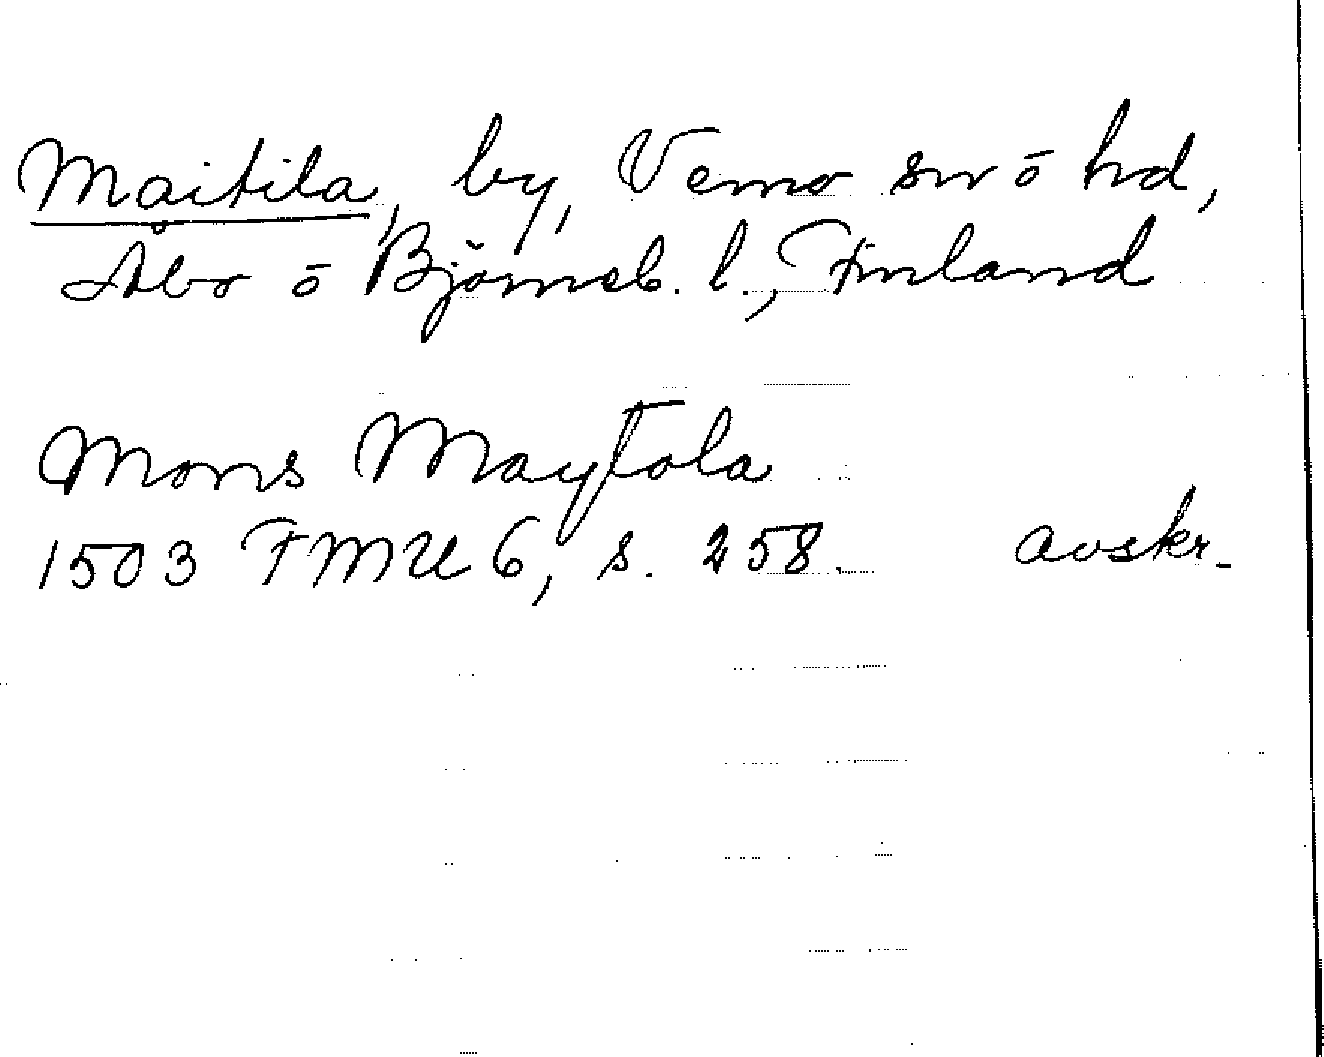 Maitila, by, Vemo sn o hd,
Åbo o Björneb. l., Finland
Mons Maytola
1503 FMU 6, s. 258. avskr.